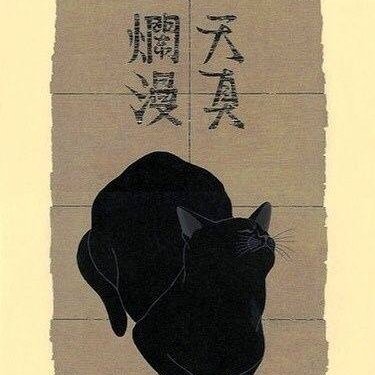 天真
爛漫